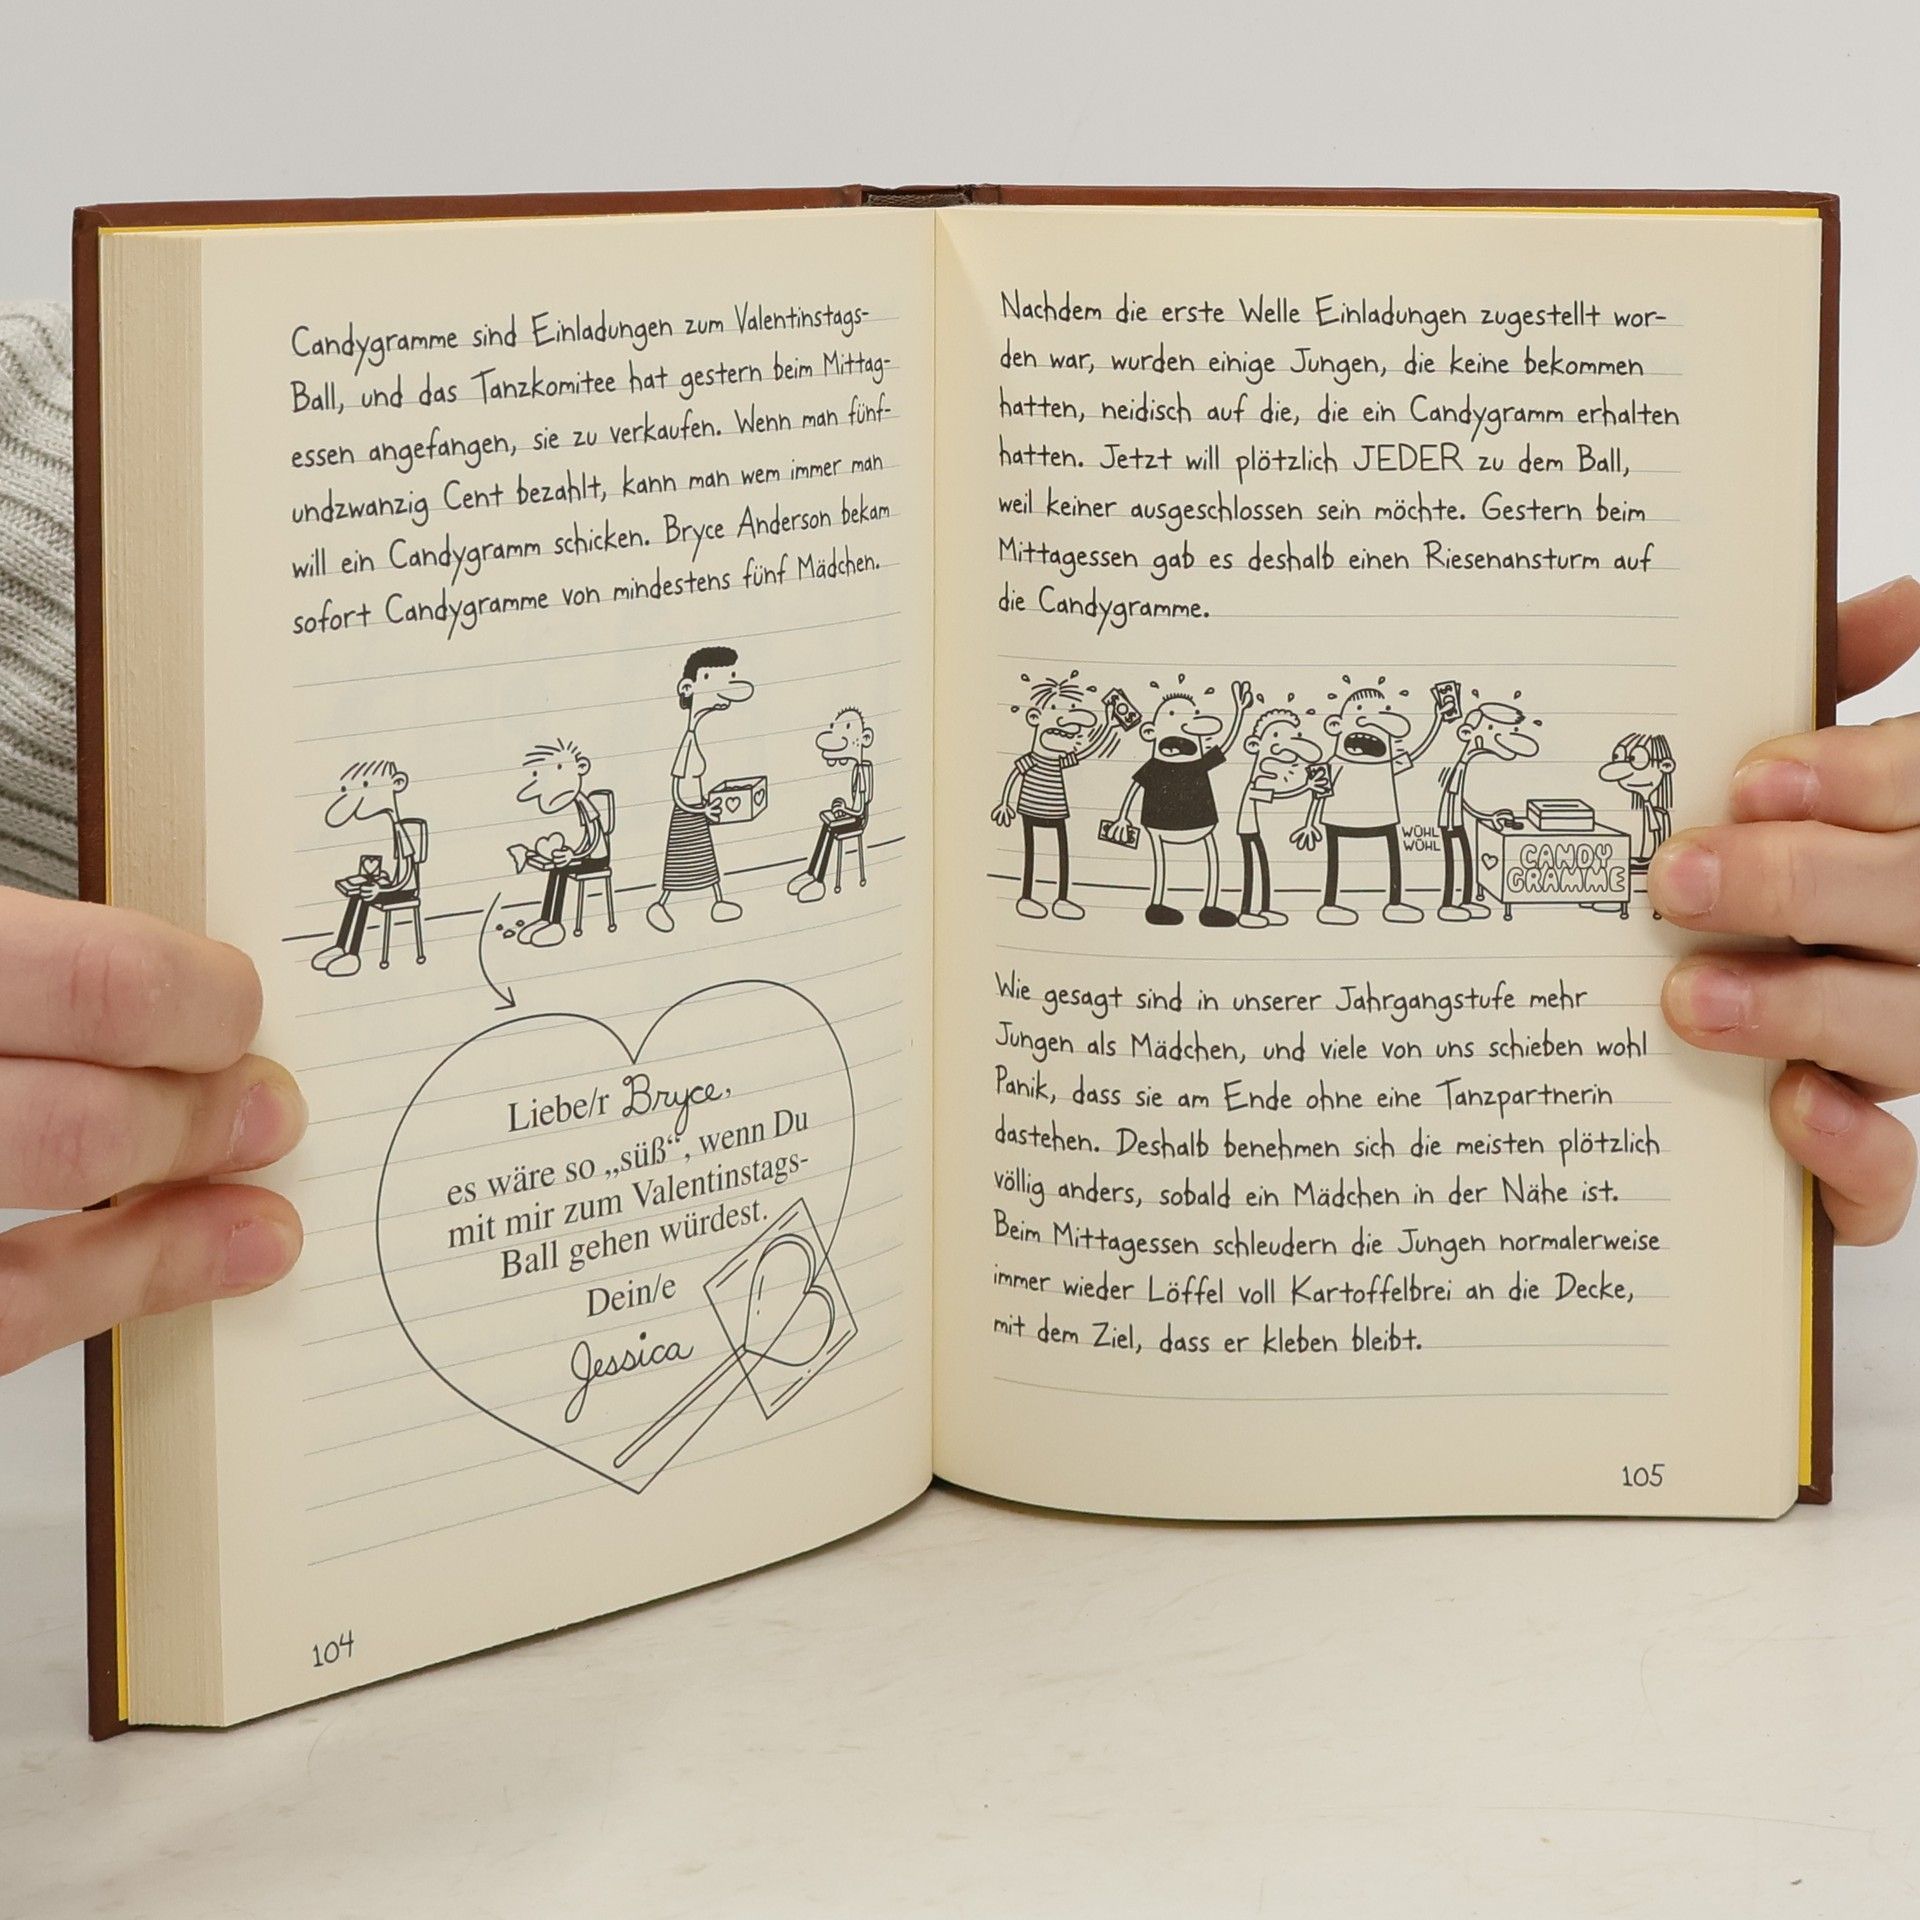 Candygramme sind Einladungen zum Valentinstags-
Ball, und das Tanzkomitee hat gestern beim Mittag-
essen angefangen, sie zu verkaufen. Wenn man fünf-
undzwanzig Cent bezahlt, kann man wem immer man
will ein Candygramm schicken. Bryce Anderson bekam
sofort Candygramme von mindestens fünf Mädchen.
Liebe/r Bryce,
es wäre so „süß“, wenn Du
mit mir zum Valentinstags-
Ball gehen würdest.
Dein/e
Jessica
104
Nachdem die erste Welle Einladungen zugestellt wor-
den war, wurden einige Jungen, die keine bekommen
hatten, neidisch auf die, die ein Candygramm erhalten
hatten. Jetzt will plötzlich JEDER zu dem Ball,
weil keiner ausgeschlossen sein möchte. Gestern beim
Mittagessen gab es deshalb einen Riesenansturm auf
die Candygramme.
WÜHL
WÜHL
CANDY
GRAMME
Wie gesagt sind in unserer Jahrgangstufe mehr
Jungen als Mädchen, und viele von uns schieben wohl
Panik, dass sie am Ende ohne eine Tanzpartnerin
dastehen. Deshalb benehmen sich die meisten plötzlich
völlig anders, sobald ein Mädchen in der Nähe ist.
Beim Mittagessen schleudern die Jungen normalerweise
immer wieder Löffel voll Kartoffelbrei an die Decke,
mit dem Ziel, dass er kleben bleibt.
105